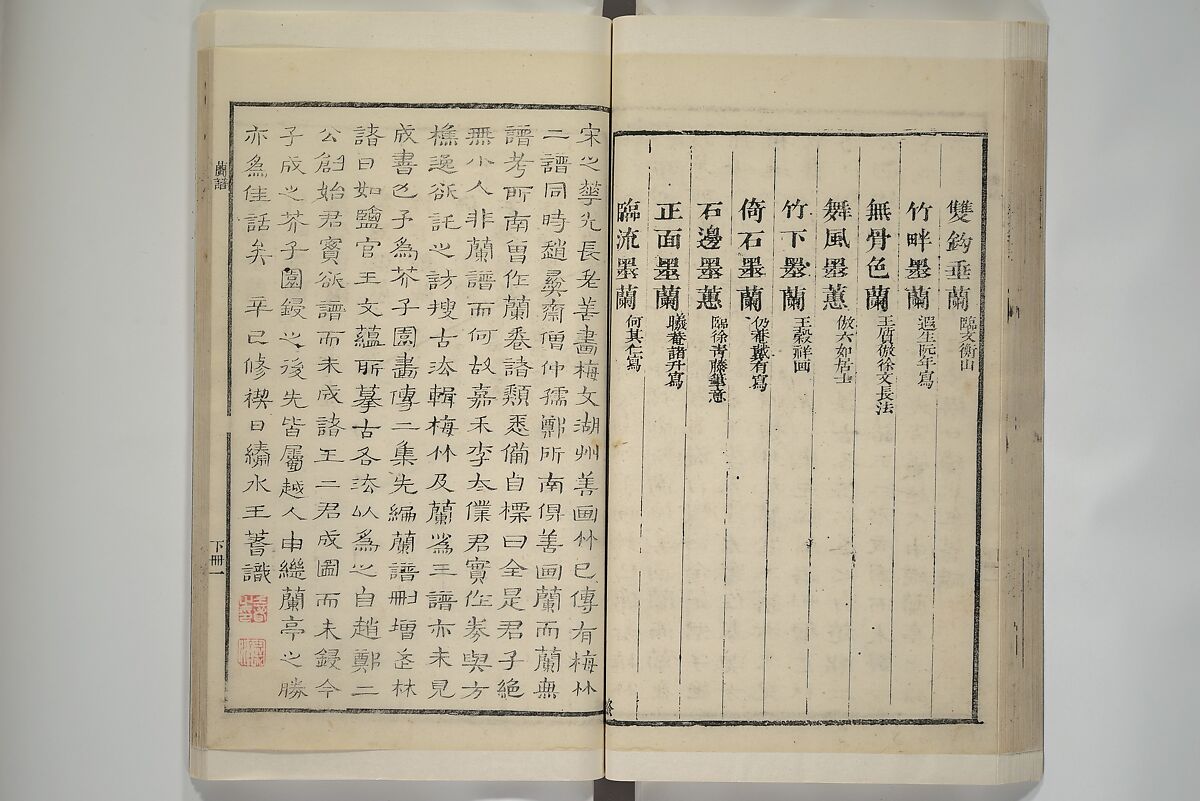 雙鈎垂蘭 臨文衡山
竹畔墨蘭 遐生阮年寫
無骨色蘭 王質倣徐文長法
舞風墨蕙 倣六如居士
竹下墨蘭 王穀祥画
倚石墨蘭 仍菴戴有寫
石邊墨蕙 臨徐青藤筆意
正面墨蘭 曦菴諸升寫
臨流墨蘭 何其仁寫
終
宋之華光長老善畵梅文湖州善画竹已傳有梅竹
二譜同時趙彛齋僧仲孺鄭所南俱善画蘭而蘭無
譜考所南曽作蘭卷諸類悉備自標曰全是君子絕
無小人非蘭譜而何故嘉禾李太僕君實作劵與方
樵逸欲託之訪搜古法輯梅竹及蘭爲三譜亦未見
成書也予爲芥子園畵傳二集先編蘭譜刪增孟林
諸曰如鹽官王文蘊所摹古各法以爲之自趙鄭二
公創始君實欲譜而未成諸王二君成圖而未鋟今
予成之芥子園鋟之後先皆屬越人申繼蘭亭之勝
亦爲佳話矣 辛巳修禊日繡水王蓍識
蘭譜
下冊一